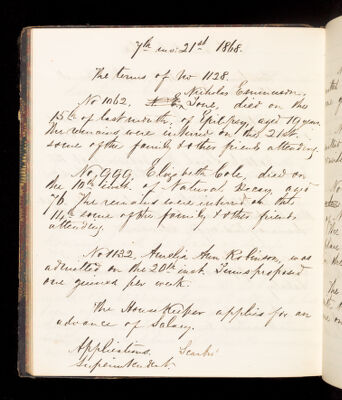 7th mo: 21st 1868.
The terms of No 1128.
Nicholas
No 1062. Jone, died on the
15th of last month, of Epilepsy, aged 19 years.
The remains were interred on the 21st.
some of the family & other friends attending.
No, 999. Elizabeth Cole, died on
the 10th of Natural Decay, aged
76. The remains were interred on the
14th some of the family & other friends
attending.
No 1132. Amelia Ann Robinson, was
admitted on the 20th inst. Terms proposed
one guinea per week.
The HouseKeeper applies for an
advance of Salary.
Applications.
Superintendent.